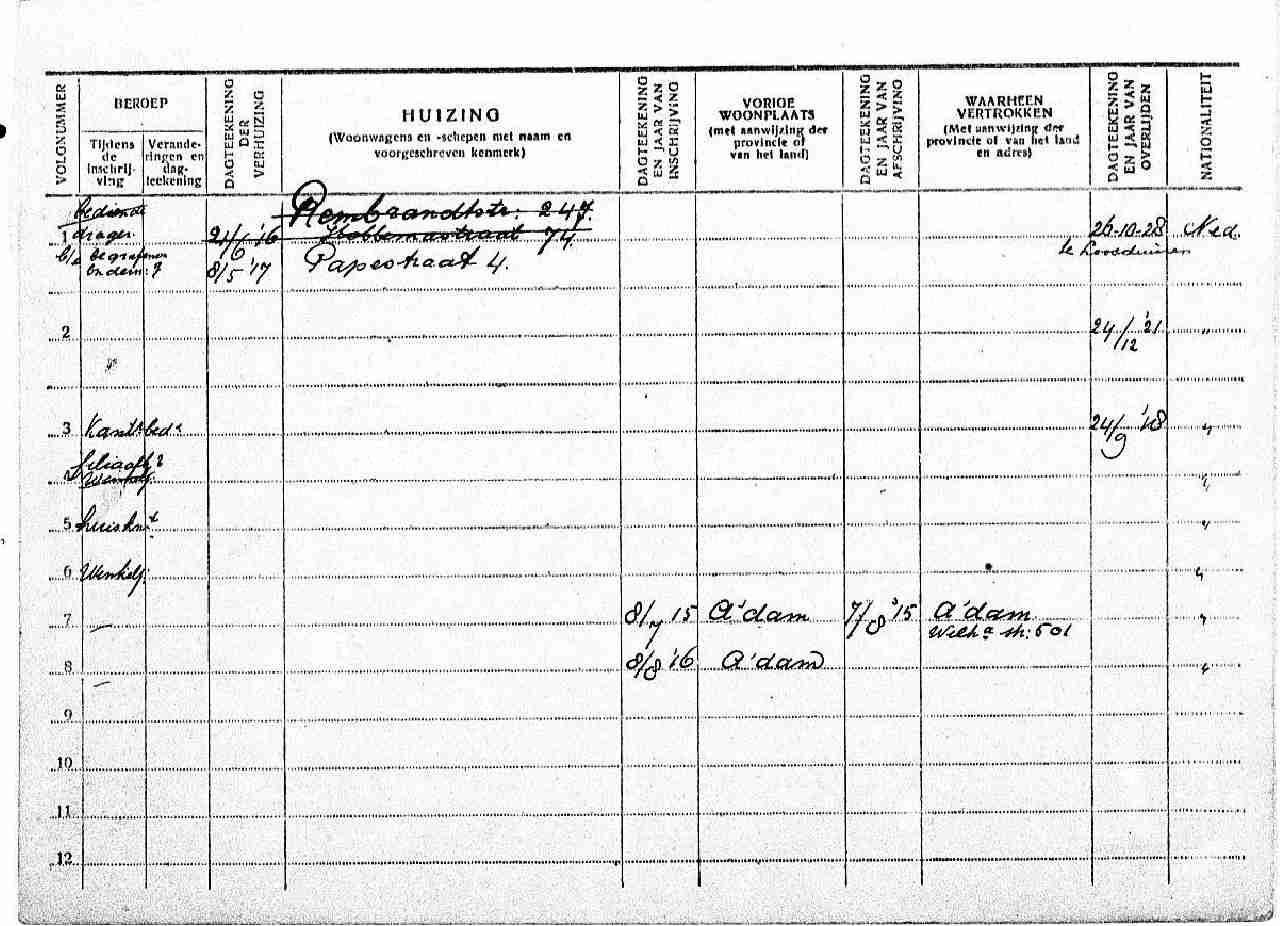 VOLGNUMMER
BEROEP
Tijdens de inschrij- ving
Verande- ringen en dag- teekening
DAGTEEKENING DER VERHUIZING
HUIZING
(Woonwagens en -schepen met naam en
voorgeschreven kenmerk)
DAGTEEKENING EN JAAR VAN INSCHRIJVING
VORIGE
WOONPLAATS
(met aanwijzing der
provincie of
van het land)
DAGTEEKENING EN JAAR VAN AFSCHRIJVING
WAARHEEN
VERTROKKEN
(Met aanwijzing der
provincie of van het land
en adres)
DAGTEEKENING EN JAAR VAN OVERLIJDEN
NATIONALITEIT
bediende Rembrandtstr: 247.
1 drager 21/6 '16 Hobbemastraat 74. 26-10-28 Ned.
b/a begrafenis te Loosduinen
8/5 '17 Papestraat 4.
2 24/12 '21 "
3 Kantbede 24/9 '18 "
filiaalh
Winkelj. "
5 huiskn "
6 Winkelj. "
7 — 8/7 15 A'dam 7/8 '15 A'dam "
Wilha str: 501
8 — 8/8 '16 A'dam "
9
10
11
12